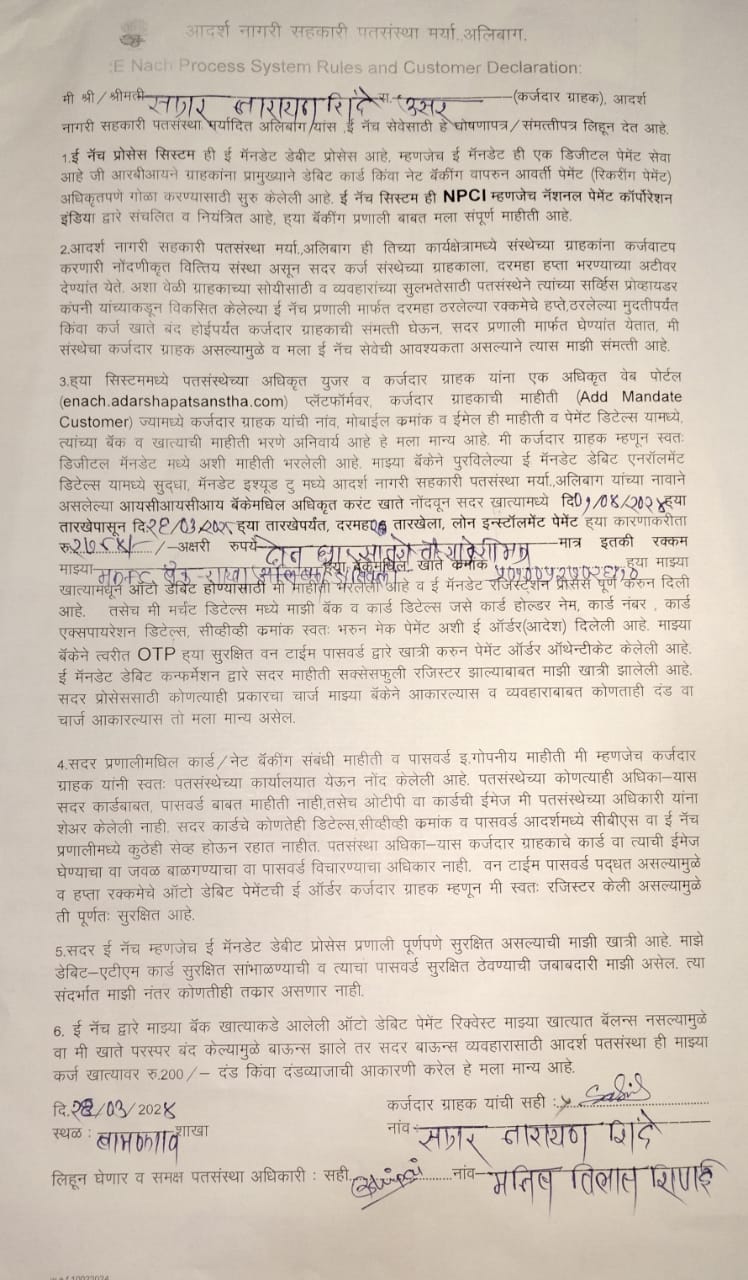 आदर्श नागरी सहकारी पतसंस्था मर्या.,अलिबाग.
:E Nach Process System Rules and Customer Declaration:
मी श्री/श्रीमती सागर नारायण शिंदे रा. उसर (कर्जदार ग्राहक), आदर्श
नागरी सहकारी पतसंस्था मर्यादित अलिबाग यांस ,ई नॅच सेवेसाठी हे घोषणापत्र/संमत्तीपत्र लिहून देत आहे.
1.ई नॅच प्रोसेस सिस्टिम ही ई मॅनडेट डेबीट प्रोसेस आहे, म्हणजेच ई मॅनडेट ही एक डिजीटल पेमेंट सेवा
आहे जी आरबीआयने ग्राहकांना प्रामुख्याने डेबिट कार्ड किंवा नेट बॅकींग वापरुन आवर्ती पेमेंट (रिकरींग पेमेंट)
अधिकृतपणे गोळा करण्यासाठी सुरु केलेली आहे. ई नॅच सिस्टिम ही NPCI म्हणजेच नॅशनल पेमेंट कॉर्पोरेशन
इंडिया द्वारे संचलित व नियंत्रित आहे, ह्या बॅकींग प्रणाली बाबत मला संपूर्ण माहीती आहे.
2.आदर्श नागरी सहकारी पतसंस्था मर्या.,अलिबाग ही तिच्या कार्यक्षेत्रामध्ये संस्थेच्या ग्राहकांना कर्जवाटप
करणारी नोंदणीकृत वित्तिय संस्था असून सदर कर्ज संस्थेच्या ग्राहकाला, दरमहा हप्ता भरण्याच्या अटीवर
देण्यांत येते. अशा वेळी ग्राहकाच्या सोयीसाठी व व्यवहारांच्या सुलभतेसाठी पतसंस्थेने त्यांच्या सर्व्हिस प्रोव्हायडर
कंपनी यांच्याकडून विकसित केलेल्या ई नॅच प्रणाली मार्फत दरमहा ठरलेल्या रक्कमेचे हप्ते,ठरलेल्या मुदतीपर्यंत
किंवा कर्ज खाते बंद होईपर्यंत कर्जदार ग्राहकाची संमत्ती घेऊन, सदर प्रणाली मार्फत घेण्यांत येतात, मी
संस्थेचा कर्जदार ग्राहक असल्यामुळे व मला ई नॅच सेवेची आवश्यकता असल्याने त्यास माझी संमत्ती आहे.
3.ह्या सिस्टिममध्ये पतसंस्थेच्या अधिकृत युजर व कर्जदार ग्राहक यांना एक अधिकृत वेब पोर्टल
(enach.adarshapatsanstha.com) प्लॅटफॉर्मवर, कर्जदार ग्राहकाची माहीती (Add Mandate
Customer) ज्यामध्ये कर्जदार ग्राहक यांची नांव, मोबाईल क्रमांक व ईमेल ही माहीती व पेमेंट डिटेल्स यामध्ये,
त्यांच्या बॅंक व खात्याची माहीती भरणे अनिवार्य आहे हे मला मान्य आहे. मी कर्जदार ग्राहक म्हणून स्वतः
डिजीटल मॅनडेट मध्ये अशी माहीती भरलेली आहे. माझ्या बॅकेने पुरविलेल्या ई मॅनडेट डेबिट एनरॉलमेंट
डिटेल्स यामध्ये सुद्धा, मॅनडेट इश्यूड टु मध्ये आदर्श नागरी सहकारी पतसंस्था मर्या.,अलिबाग यांच्या नावाने
असलेल्या आयसीआयसीआय बॅकेमधिल अधिकृत करंट खाते नोंदवून सदर खात्यामध्ये दि०१/०४/२०२४ह्या
तारखेपासून दि२८/०३/२०२८ ह्या तारखेपर्यंत, दरमहा तारखेला, लोन इन्स्टॉलमेंट पेमेंट ह्या कारणाकरीता
रु. /-अक्षरी रुपये मात्र इतकी रक्कम
माझ्या ह्या बॅकेमधिल खाते क्रमांक ह्या माझ्या
खात्यामधून ऑटो डेबिट होण्यासाठी मी माहीती भरलेली आहे व ई मॅनडेट रजिस्ट्रेशन प्रोसेस पूर्ण करुन दिली
आहे. तसेच मी मर्चंट डिटेल्स मध्ये माझी बॅक व कार्ड डिटेल्स जसे कार्ड होल्डर नेम, कार्ड नंबर , कार्ड
एक्सपायरेशन डिटेल्स, सीव्हीव्ही क्रमांक स्वतः भरुन मेक पेमेंट अशी ई ऑर्डर(आदेश) दिलेली आहे. माझ्या
बॅकेने त्वरीत OTP ह्या सुरक्षित वन टाईम पासवर्ड द्वारे खात्री करुन पेमेंट ऑर्डर ऑथेन्टीकेट केलेली आहे.
ई मॅनडेट डेबिट कन्फर्मेशन द्वारे सदर माहीती सक्सेसफुली रजिस्टर झाल्याबाबत माझी खात्री झालेली आहे.
सदर प्रोसेससाठी कोणत्याही प्रकारचा चार्ज माझ्या बॅकेने आकारल्यास व व्यवहाराबाबत कोणताही दंड वा
चार्ज आकारल्यास तो मला मान्य असेल.
4.सदर प्रणालीमधिल कार्ड/नेट बॅकींग संबंधी माहीती व पासवर्ड इ.गोपनीय माहीती मी म्हणजेच कर्जदार
ग्राहक यांनी स्वतः पतसंस्थेच्या कार्यालयात येऊन नोंद केलेली आहे. पतसंस्थेच्या कोणत्याही अधिका–यास
सदर कार्डबाबत, पासवर्ड बाबत माहीती नाही,तसेच ओटीपी वा कार्डची ईमेज मी पतसंस्थेच्या अधिकारी यांना
शेअर केलेली नाही. सदर कार्डचे कोणतेही डिटेल्स,सीव्हीव्ही क्रमांक व पासवर्ड आदर्शमध्ये सीबीएस वा ई नॅच
प्रणालीमध्ये कुठेही सेव्ह होऊन रहात नाहीत. पतसंस्था अधिका–यास कर्जदार ग्राहकाचे कार्ड वा त्याची ईमेज
घेण्याचा वा जवळ बाळगण्याचा वा पासवर्ड विचारण्याचा अधिकार नाही. वन टाईम पासवर्ड पद्धत असल्यामुळे
व हप्ता रक्कमेचे ऑटो डेबिट पेमेंटची ई ऑर्डर कर्जदार ग्राहक म्हणून मी स्वतः रजिस्टर केली असल्यामुळे
ती पूर्णतः सुरक्षित आहे.
5.सदर ई नॅच म्हणजेच ई मॅनडेट डेबीट प्रोसेस प्रणाली पूर्णपणे सुरक्षित असल्याची माझी खात्री आहे. माझे
डेबिट–एटीएम कार्ड सुरक्षित सांभाळण्याची व त्याचा पासवर्ड सुरक्षित ठेवण्याची जबाबदारी माझी असेल. त्या
संदर्भात माझी नंतर कोणतीही तक्रार असणार नाही.
6. ई नॅच द्वारे माझ्या बॅक खात्याकडे आलेली ऑटो डेबिट पेमेंट रिक्वेस्ट माझ्या खात्यात बॅलन्स नसल्यामुळे
वा मी खाते परस्पर बंद केल्यामुळे बाऊन्स झाले तर सदर बाऊन्स व्यवहारासाठी आदर्श पतसंस्था ही माझ्या
कर्ज खात्यावर रु.200/– दंड किंवा दंडव्याजाची आकारणी करेल हे मला मान्य आहे.
दि. /03/202४ कर्जदार ग्राहक यांची सही :
स्थळ : शाखा नांव सागर नारायण शिंदे
लिहून घेणार व समक्ष पतसंस्था अधिकारी : सही नांव